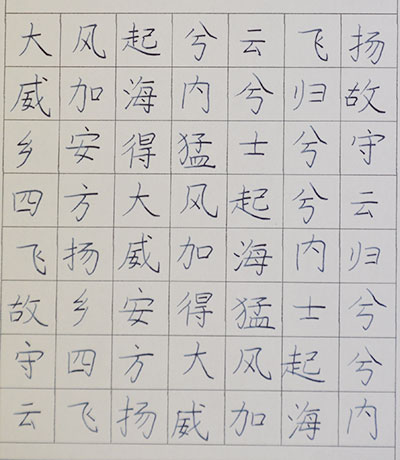 大风起兮云飞扬
威加海内兮归故
乡安得猛士兮守
四方大风起兮云
飞扬威加海内归
故乡安得猛士兮
守四方大风起兮
云飞扬威加海内